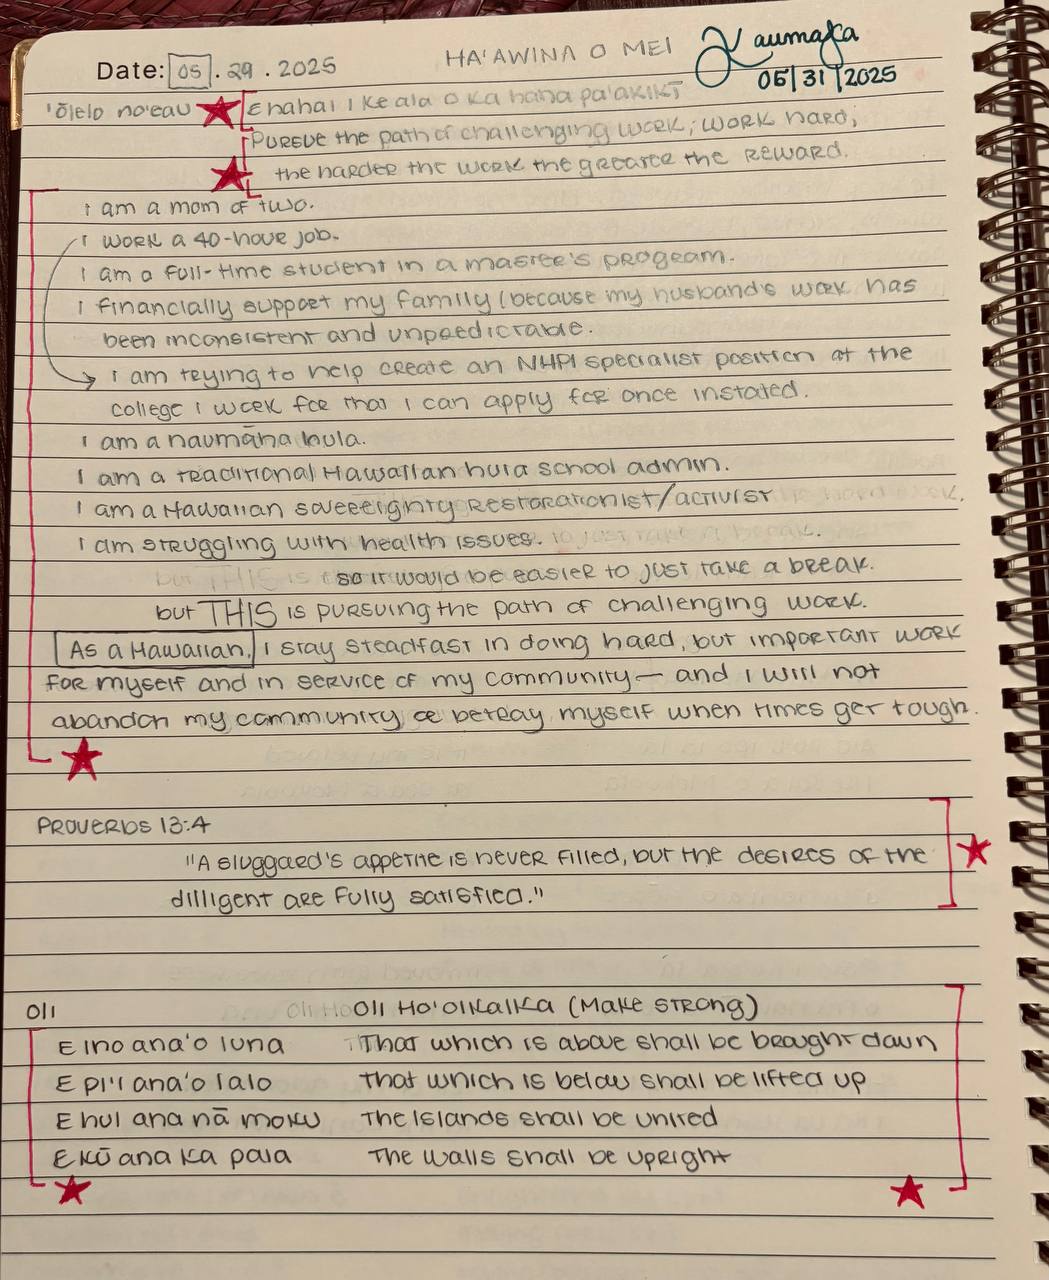 Date: 05.29.2025
HA'AWINA O MEI
Kaumaka
05|31|2025
'ōlelo no'eau
E hahai i ke ala o ka hana pa'akikī
Pursue the path of challenging work; work hard;
the harder the work the greater the reward.
I am a mom of two.
I work a 40-hour job.
I am a full-time student in a master's program.
I financially support my family (because my husband's work has
been inconsistent and unpredictable.
I am trying to help create an NHPI specialist position at the
college I work for that I can apply for once instated.
I am a haumāna hula.
I am a traditional Hawaiian hula school admin.
I am a Hawaiian sovereignty restorationist/activist.
I am struggling with health issues.
so it would be easier to just take a break.
but THIS is pursuing the path of challenging work.
As a Hawaiian, I stay steadfast in doing hard, but important work
for myself and in service of my community— and I will not
abandon my community, or betray myself when times get tough.
Proverbs 13:4
"A sluggard's appetite is never filled, but the desires of the
dilligent are fully satisfied."
Oli
Oli Ho'oikaika (Make strong)
E iho ana 'o luna That which is above shall be brought down
E pi'i ana 'o lalo That which is below shall be lifted up
E hui ana nā moku The islands shall be united
E kū ana ka paia The walls shall be upright